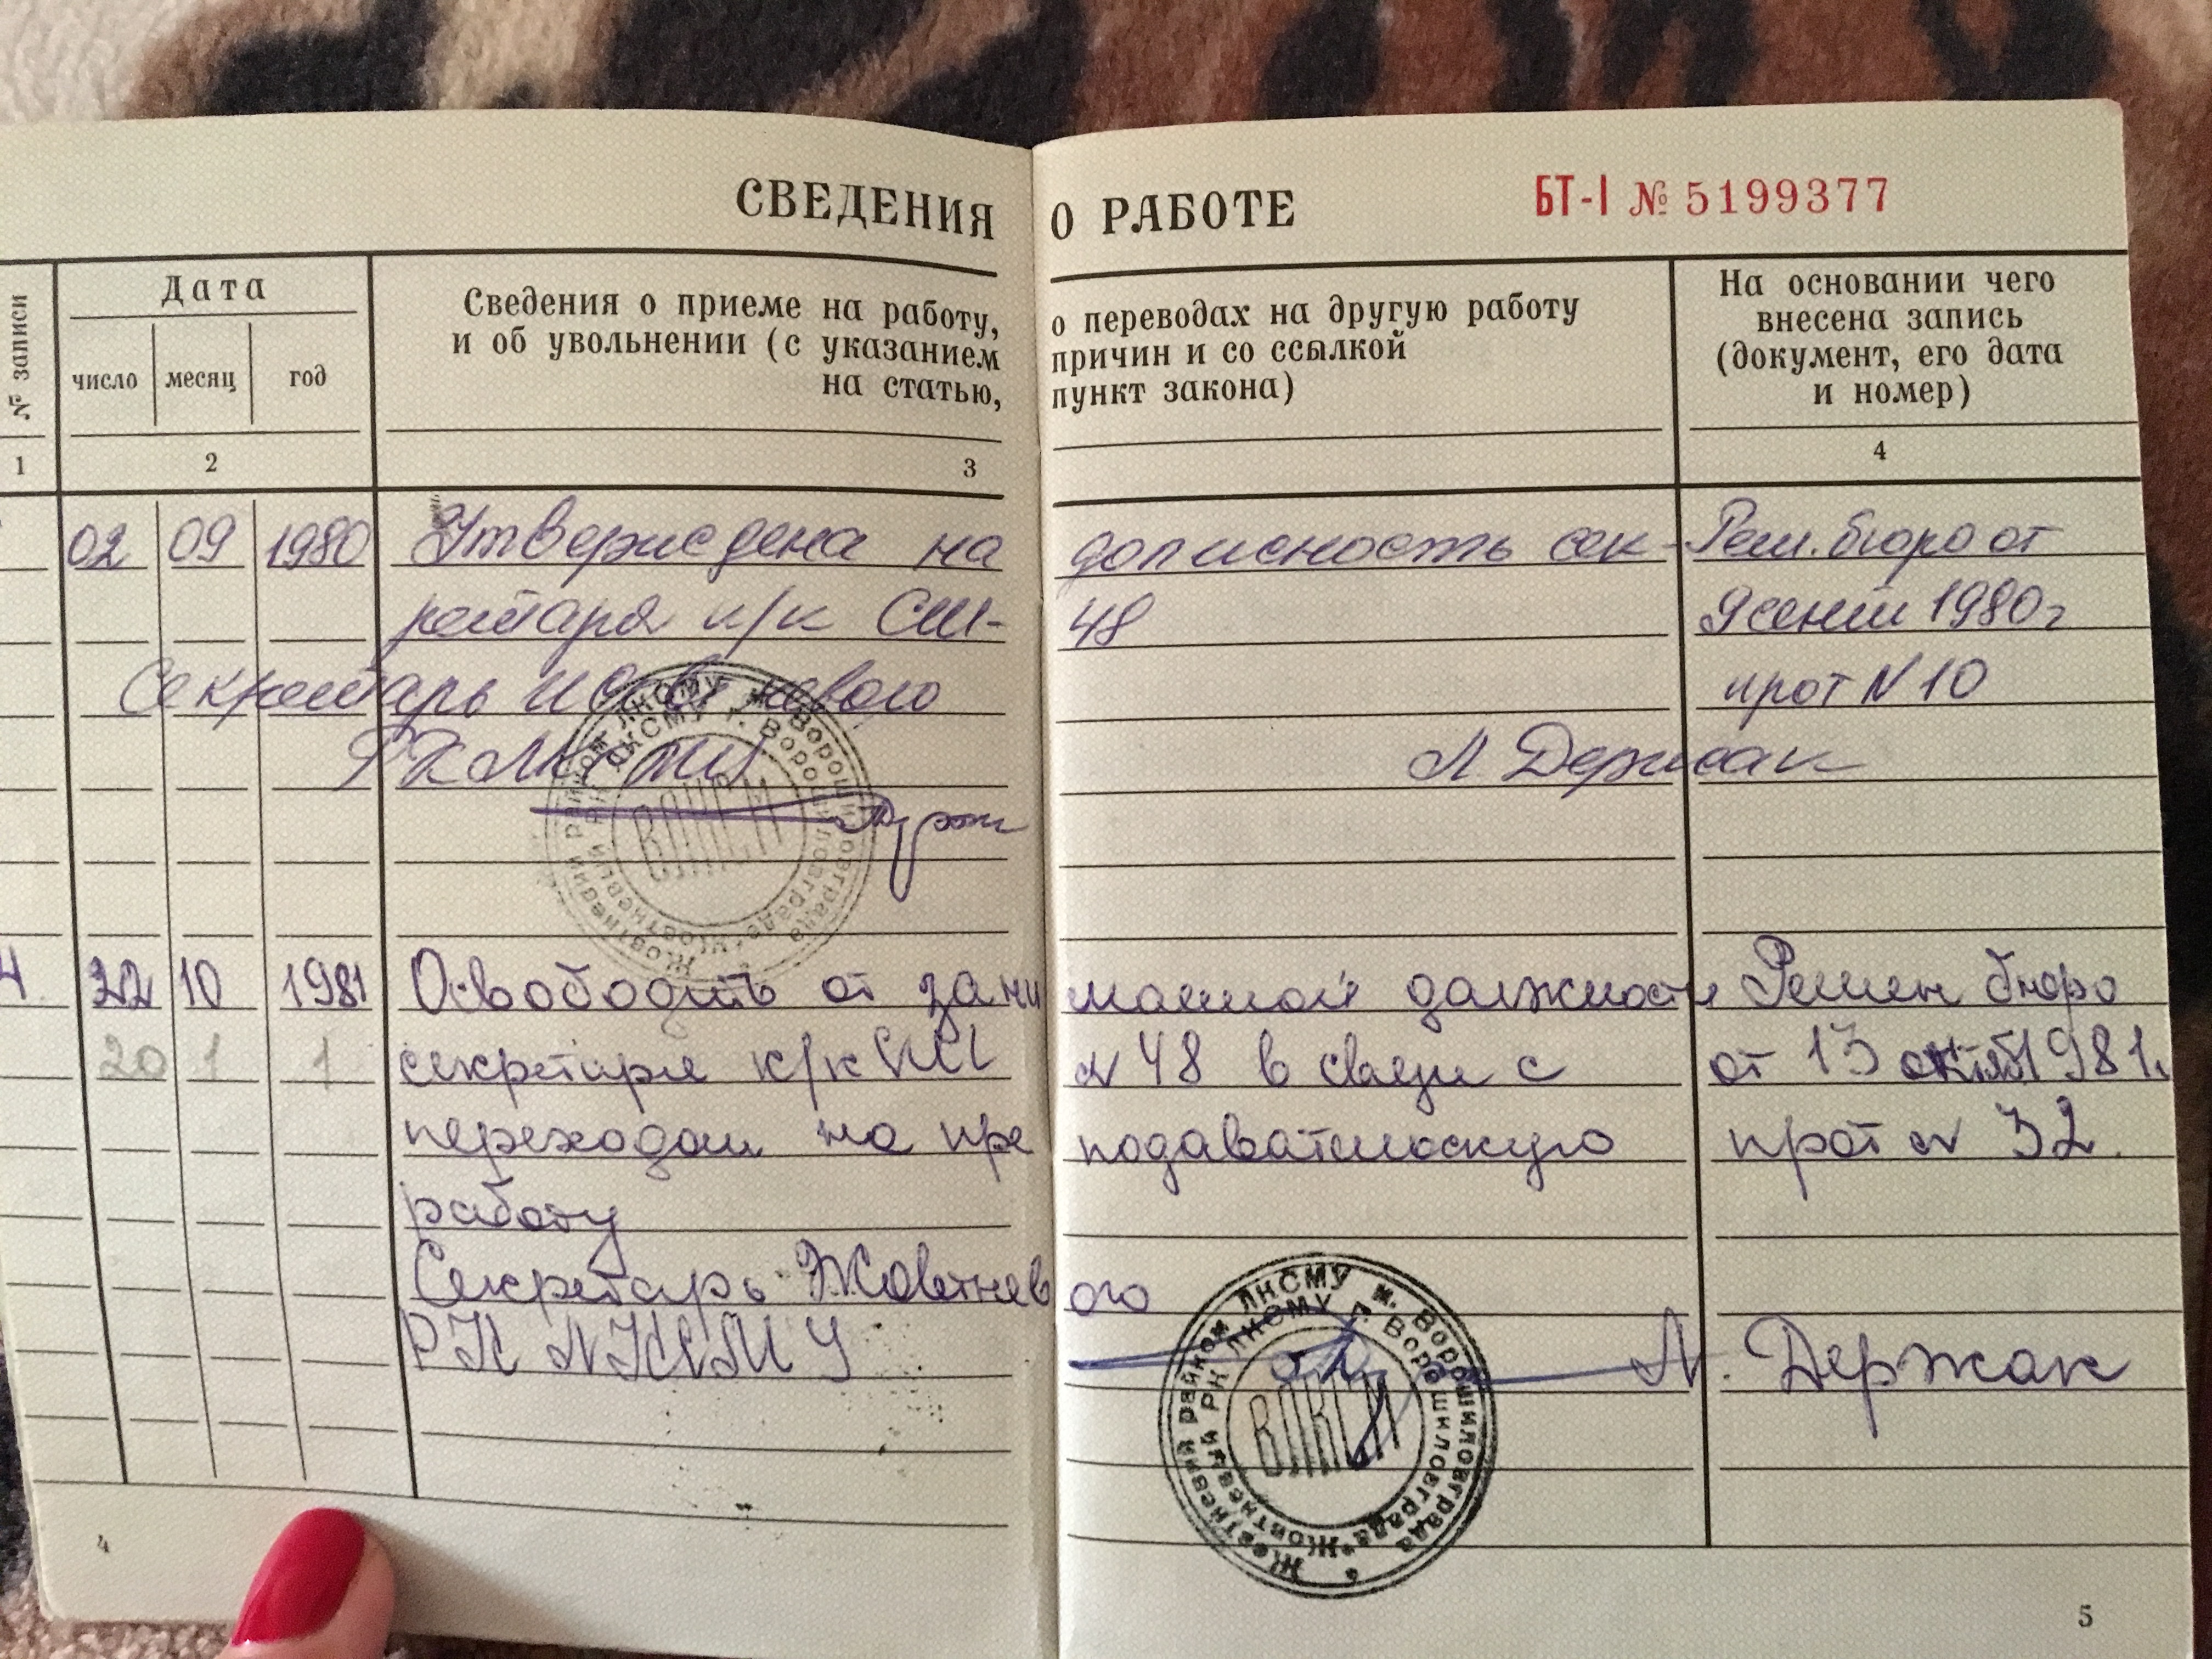 СВЕДЕНИЯ О РАБОТЕ
БТ-I № 5199377
№ записи
Дата
число месяц год
Сведения о приеме на работу, о переводах на другую работу
и об увольнении (с указанием причин и со ссылкой
на статью, пункт закона)
На основании чего
внесена запись
(документ, его дата
и номер)
1 2 3 4
02 09 1980 Утверждена на должность сек- Реш. бюро от
ретаря к/к СШ- 48 1980г
Секретарь Жовтневого прот N 10
РК ЛКСМУ Л Держак
Жовтневий райком ЛКСМУ м. Ворошиловграда
Жовтневый РК ЛКСМУ г. Ворошиловграда
ВЛКСМ
4 22 10 1981 Освободить от зани маемой должности Решен бюро
20 1 1 секретаря к/к СШ N 48 в связи с от 13 октяб 1981г.
переходом на пре подавательскую прот N 32.
работу
Секретарь Жовтнев ого
РК ЛКСМУ Л. Держак
Жовтневий райком ЛКСМУ м. Ворошиловграда
Жовтневый РК ЛКСМУ г. Ворошиловграда
ВЛКСМ
4 5